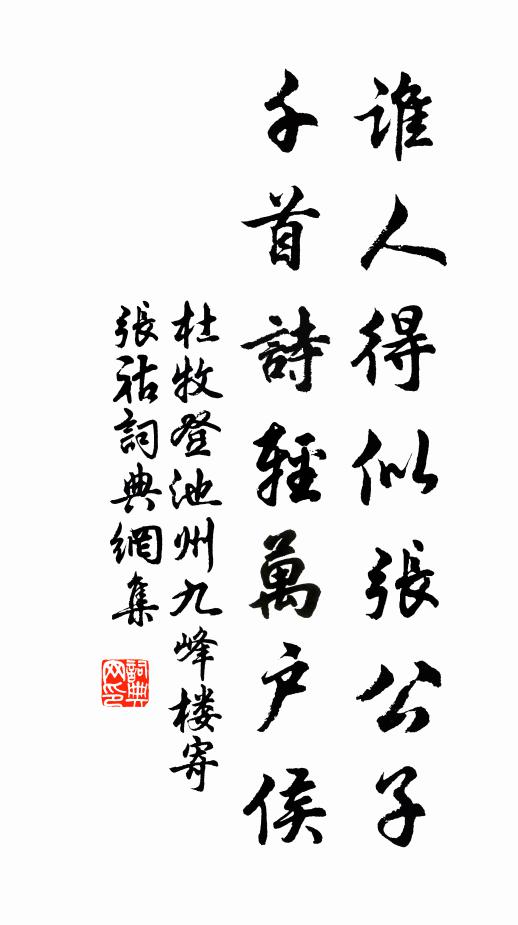 誰人得似張公子
千首詩輕萬户侯
杜牧登池州九峰楼寄
張祜詞典網集
詞典网印